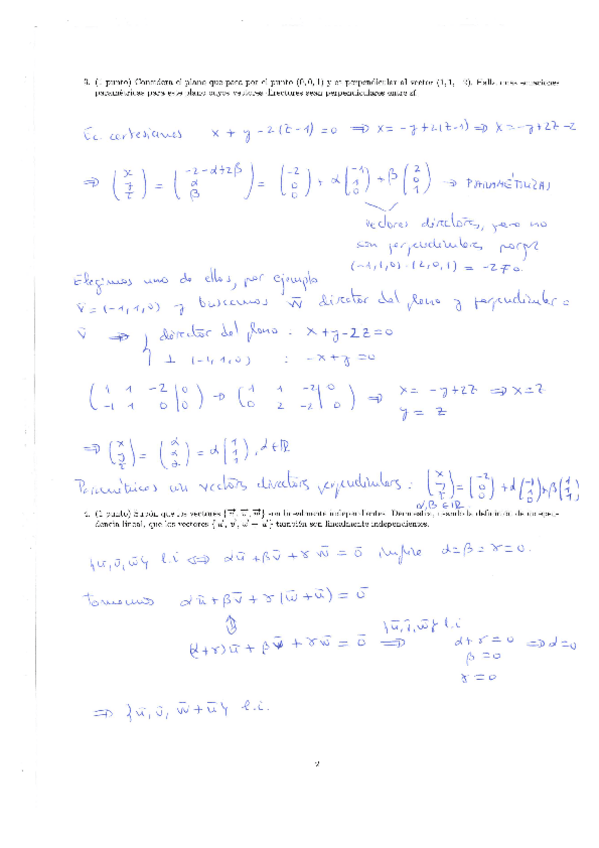 3. (1 punto) Considera el plano que pasa por el punto (0, 0, 1) y es perpendicular al vector (1, 1, −2). Halla unas ecuaciones
paramétricas para este plano cuyos vectores directores sean perpendiculares entre sí.
Ec. cartesianas x + y − 2(z−1) = 0 ⟹ x = −y+2(z−1) ⟹ x = −y+2z−2
⟹ (x y z) = (−2−α+2β α β) = (−2 0 0) + α(−1 1 0) + β(2 0 1) → PARAMÉTRICAS
vectores directores, pero no
son perpendiculares porque
(−1,1,0)·(2,0,1) = −2 ≠ 0
Elegimos uno de ellos, por ejemplo
v̄ = (−1,1,0) y buscamos w̄ director del plano y perpendicular a
v̄ ⟹ { director del plano : x+y−2z=0
⊥ (−1,1,0) : −x+y=0
(1 1 −2 | 0 −1 1 0 | 0) → (1 1 −2 | 0 0 2 −2 | 0) ⟹ x = −y+2z ⟹ x=z
y = z
⟹ (x y z) = (α α α) = α(1 1 1), α∈ℝ
Paramétricas con vectores directores perpendiculares : (x y z) = (−2 0 0) + α(−1 1 0) + β(1 1 1)
α, β ∈ ℝ
4. (1 punto) Supón que los vectores {u, v, w} son linealmente independientes. Demuestra, usando la definición de indepen-
dencia lineal, que los vectores {u, v, w + u} también son linealmente independientes.
{ū,v̄,w̄} l.i ⟺ αū+βv̄+γw̄ = 0̄ implica α=β=γ=0.
tomemos αū+βv̄+γ(w̄+ū) = 0̄
⇕
(α+γ)ū+βv̄+γw̄ = 0̄ ⟹ {ū,v̄,w̄} l.i α+γ=0 ⟹ α=0
β=0
γ=0
⟹ {ū,v̄,w̄+ū} l.i.
2